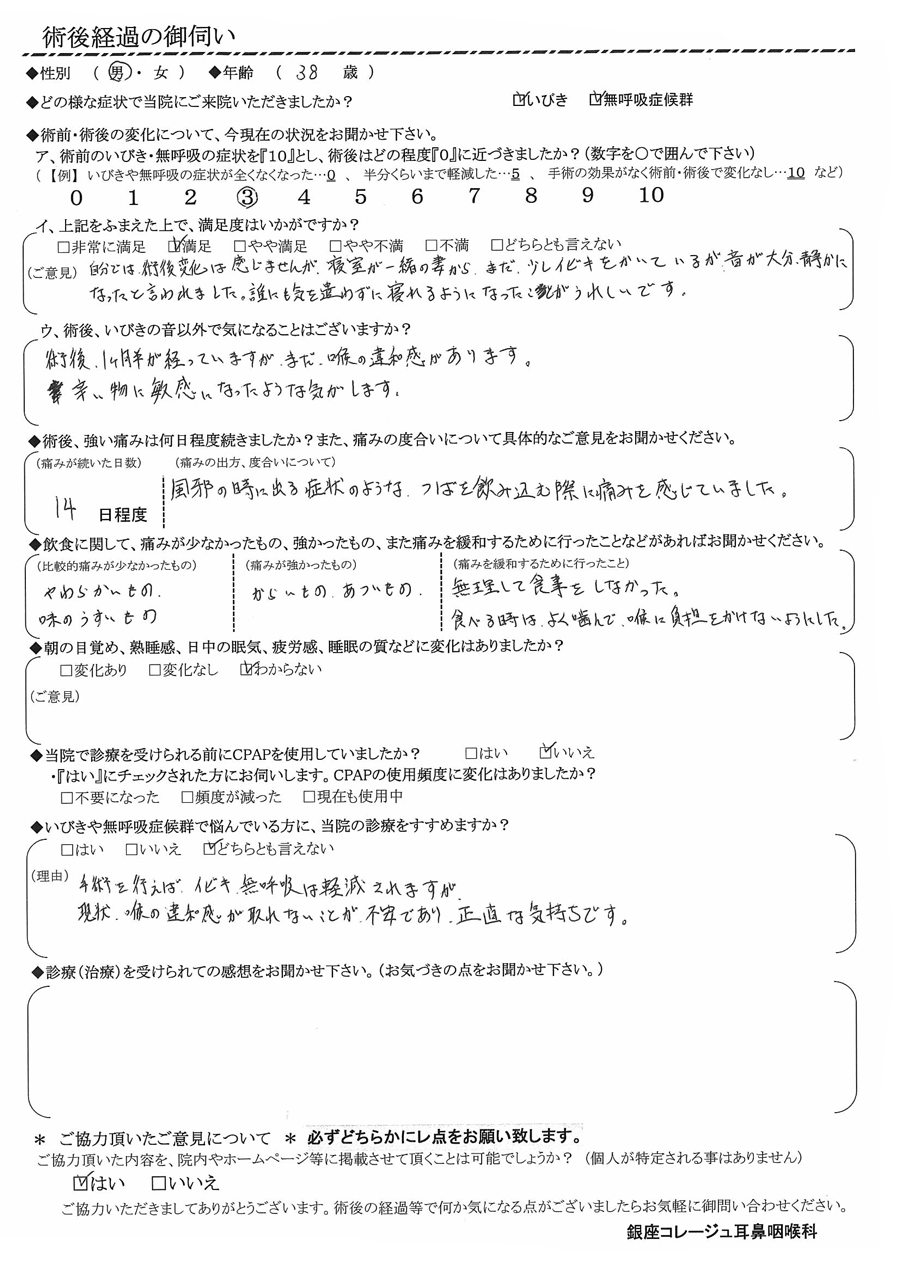 術後経過の御伺い
◆性別 （ 男 ・ 女 ） ◆年齢 （ 38 歳 ）
◆どの様な症状で当院にご来院いただきましたか？ ☑いびき ☑無呼吸症候群
◆術前・術後の変化について、今現在の状況をお聞かせ下さい。
ア、術前のいびき・無呼吸の症状を『10』とし、術後はどの程度『0』に近づきましたか？（数字を○で囲んで下さい）
（ 【例】 いびきや無呼吸の症状が全くなくなった…0 、 半分くらいまで軽減した…5 、 手術の効果がなく術前・術後で変化なし…10 など）
0 1 2 ③ 4 5 6 7 8 9 10
イ、上記をふまえた上で、満足度はいかがですか？
□非常に満足 ☑満足 □やや満足 □やや不満 □不満 □どちらとも言えない
（ご意見） 自分では、術後変化は感じませんが、寝室が一緒の妻から、まだ、少しイビキをかいているが、音が大分、静かに
なったと言われました。誰にも気を遣わずに寝れるようになった事がうれしいです。
ウ、術後、いびきの音以外で気になることはございますか？
術後、1ヶ月半が経っていますが、まだ、喉の違和感があります。
辛い物に敏感になったような気がします。
◆術後、強い痛みは何日程度続きましたか？また、痛みの度合いについて具体的なご意見をお聞かせください。
（痛みが続いた日数） （痛みの出方、度合いについて）
風邪の時に出る症状のような、つばを飲み込む際に痛みを感じていました。
14 日程度
◆飲食に関して、痛みが少なかったもの、強かったもの、また痛みを緩和するために行ったことなどがあればお聞かせください。
（比較的痛みが少なかったもの） （痛みが強かったもの） （痛みを緩和するために行ったこと）
やわらかいもの、 からいもの、あついもの、 無理して食事をしなかった。
味のうすいもの 食べる時は、よく噛んで、喉に負担をかけないようにした。
◆朝の目覚め、熟睡感、日中の眠気、疲労感、睡眠の質などに変化はありましたか？
□変化あり □変化なし ☑わからない
（ご意見）
◆当院で診療を受けられる前にCPAPを使用していましたか？ □はい ☑いいえ
・『はい』にチェックされた方にお伺いします。CPAPの使用頻度に変化はありましたか？
□不要になった □頻度が減った □現在も使用中
◆いびきや無呼吸症候群で悩んでいる方に、当院の診療をすすめますか？
□はい □いいえ ☑どちらとも言えない
（理由） 手術を行えば、イビキ、無呼吸は軽減されますが、
現状、喉の違和感が取れないことが、不安であり、正直な気持ちです。
◆診療（治療）を受けられての感想をお聞かせ下さい。（お気づきの点をお聞かせ下さい。）
＊ ご協力頂いたご意見について ＊ 必ずどちらかにレ点をお願い致します。
ご協力頂いた内容を、院内やホームページ等に掲載させて頂くことは可能でしょうか？ （個人が特定される事はありません）
☑はい □いいえ
ご協力いただきましてありがとうございます。術後の経過等で何か気になる点がございましたらお気軽に御問い合わせください。
銀座コレージュ耳鼻咽喉科